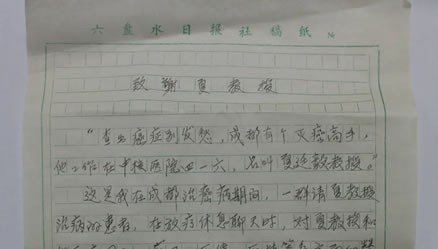 六盘水日报社稿纸
致谢夏教授
“查出癌症别发愁,成都有个灭癌高手,
他工作在中核医院四一六,名叫夏逵教教授。”
这是我在成都治癌病期间,一群请夏教授
治病的患者,在放疗休息聊天时,对夏教授和